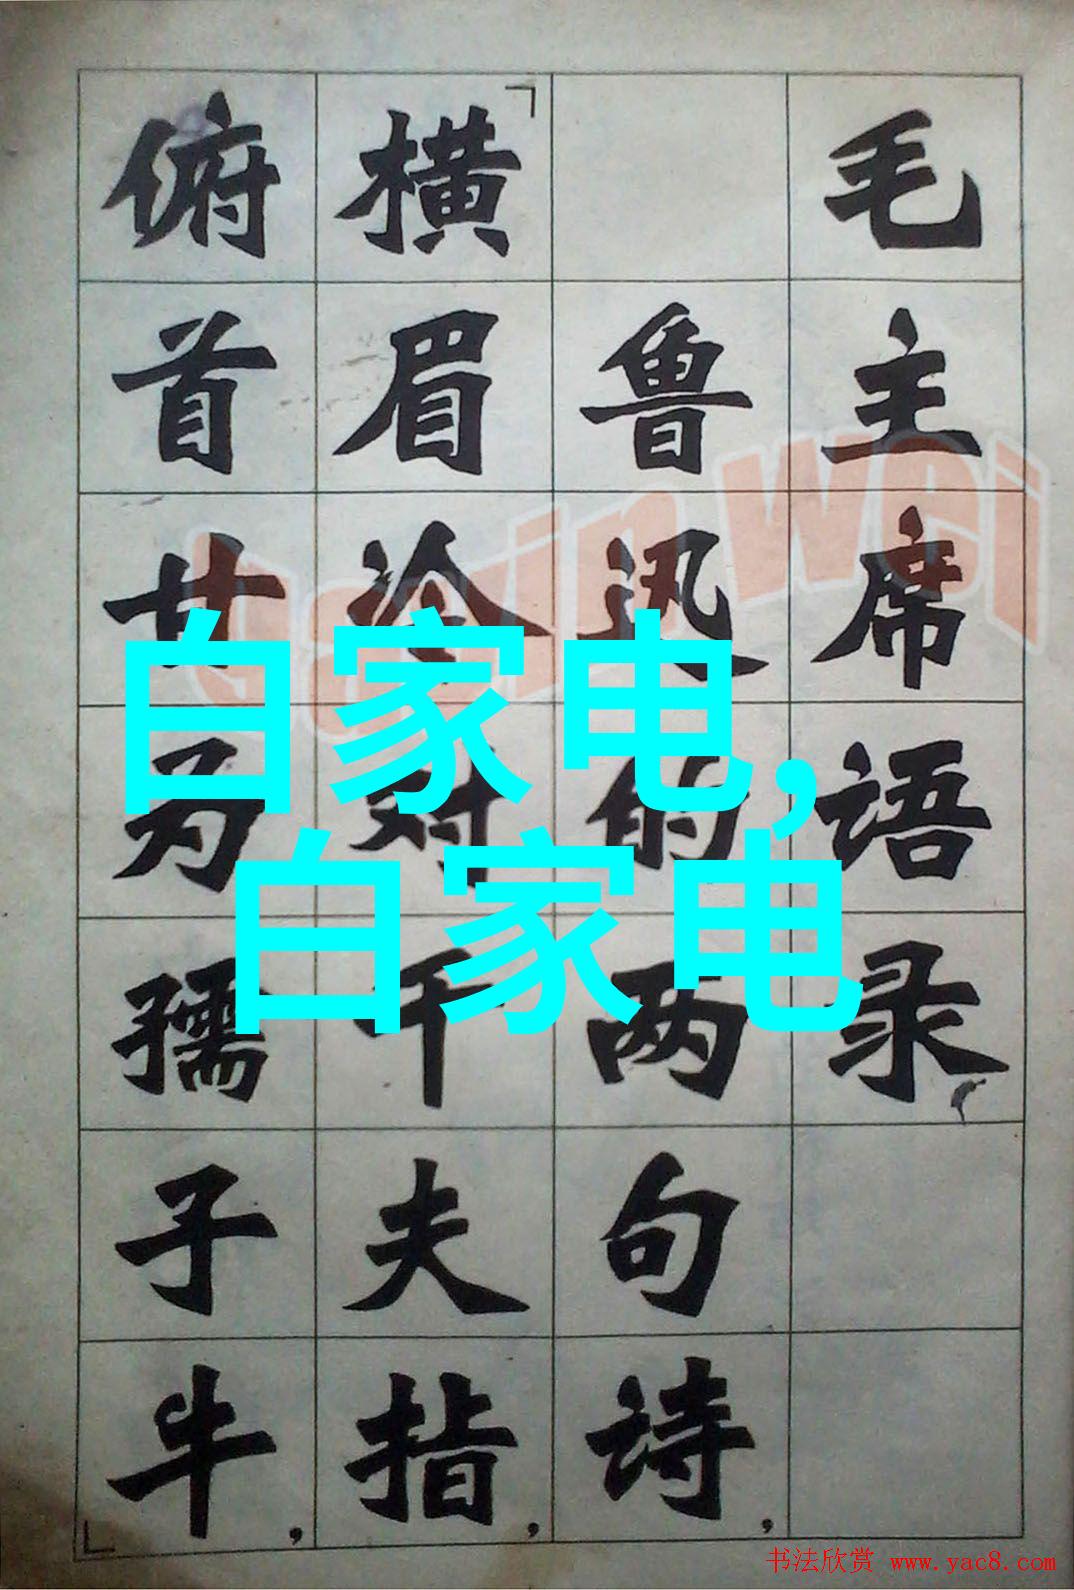 毛主席语录
鲁迅的两句诗,
「横眉冷对千夫指,
俯首甘为孺子牛,」
白家电,
白家电
书法欣赏 www.yac8.com